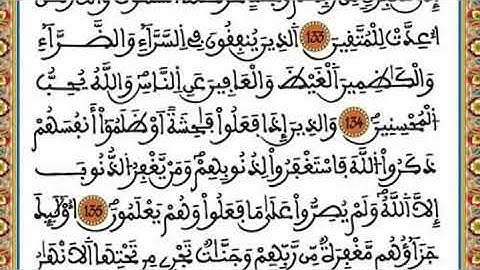 اُعِدَّتْ لِلْمُتَّقِينَ 133 اَلذِينَ يُنفِقُونَ فِي اِلسَّرَّآءِ وَالضَّرَّآءِ
وَالْكَٰظِمِينَ اَلْغَيْظَ وَالْعَافِينَ عَنِ اِلنَّاسِ وَاللَّهُ يُحِبُّ
اُلْمُحْسِنِينَ 134 وَالذِينَ إِذَا فَعَلُواْ فَٰحِشَةً اَوْ ظَلَمُوٓاْ أَنفُسَهُمْ
ذَكَرُواْ اُللَّهَ فَاسْتَغْفَرُواْ لِذُنُوبِهِمْ وَمَنْ يَّغْفِرُ اُلذُّنُوبَ
إِلَّا اَللَّهُ وَلَمْ يُصِرُّواْ عَلَىٰ مَا فَعَلُواْ وَهُمْ يَعْلَمُونَ 135 أُوْلَٰٓئِكَ
جَزَآؤُهُم مَّغْفِرَةٌ مِّن رَّبِّهِمْ وَجَنَّٰتٌ تَجْرِي مِن تَحْتِهَا اَلَانْهَٰرُ